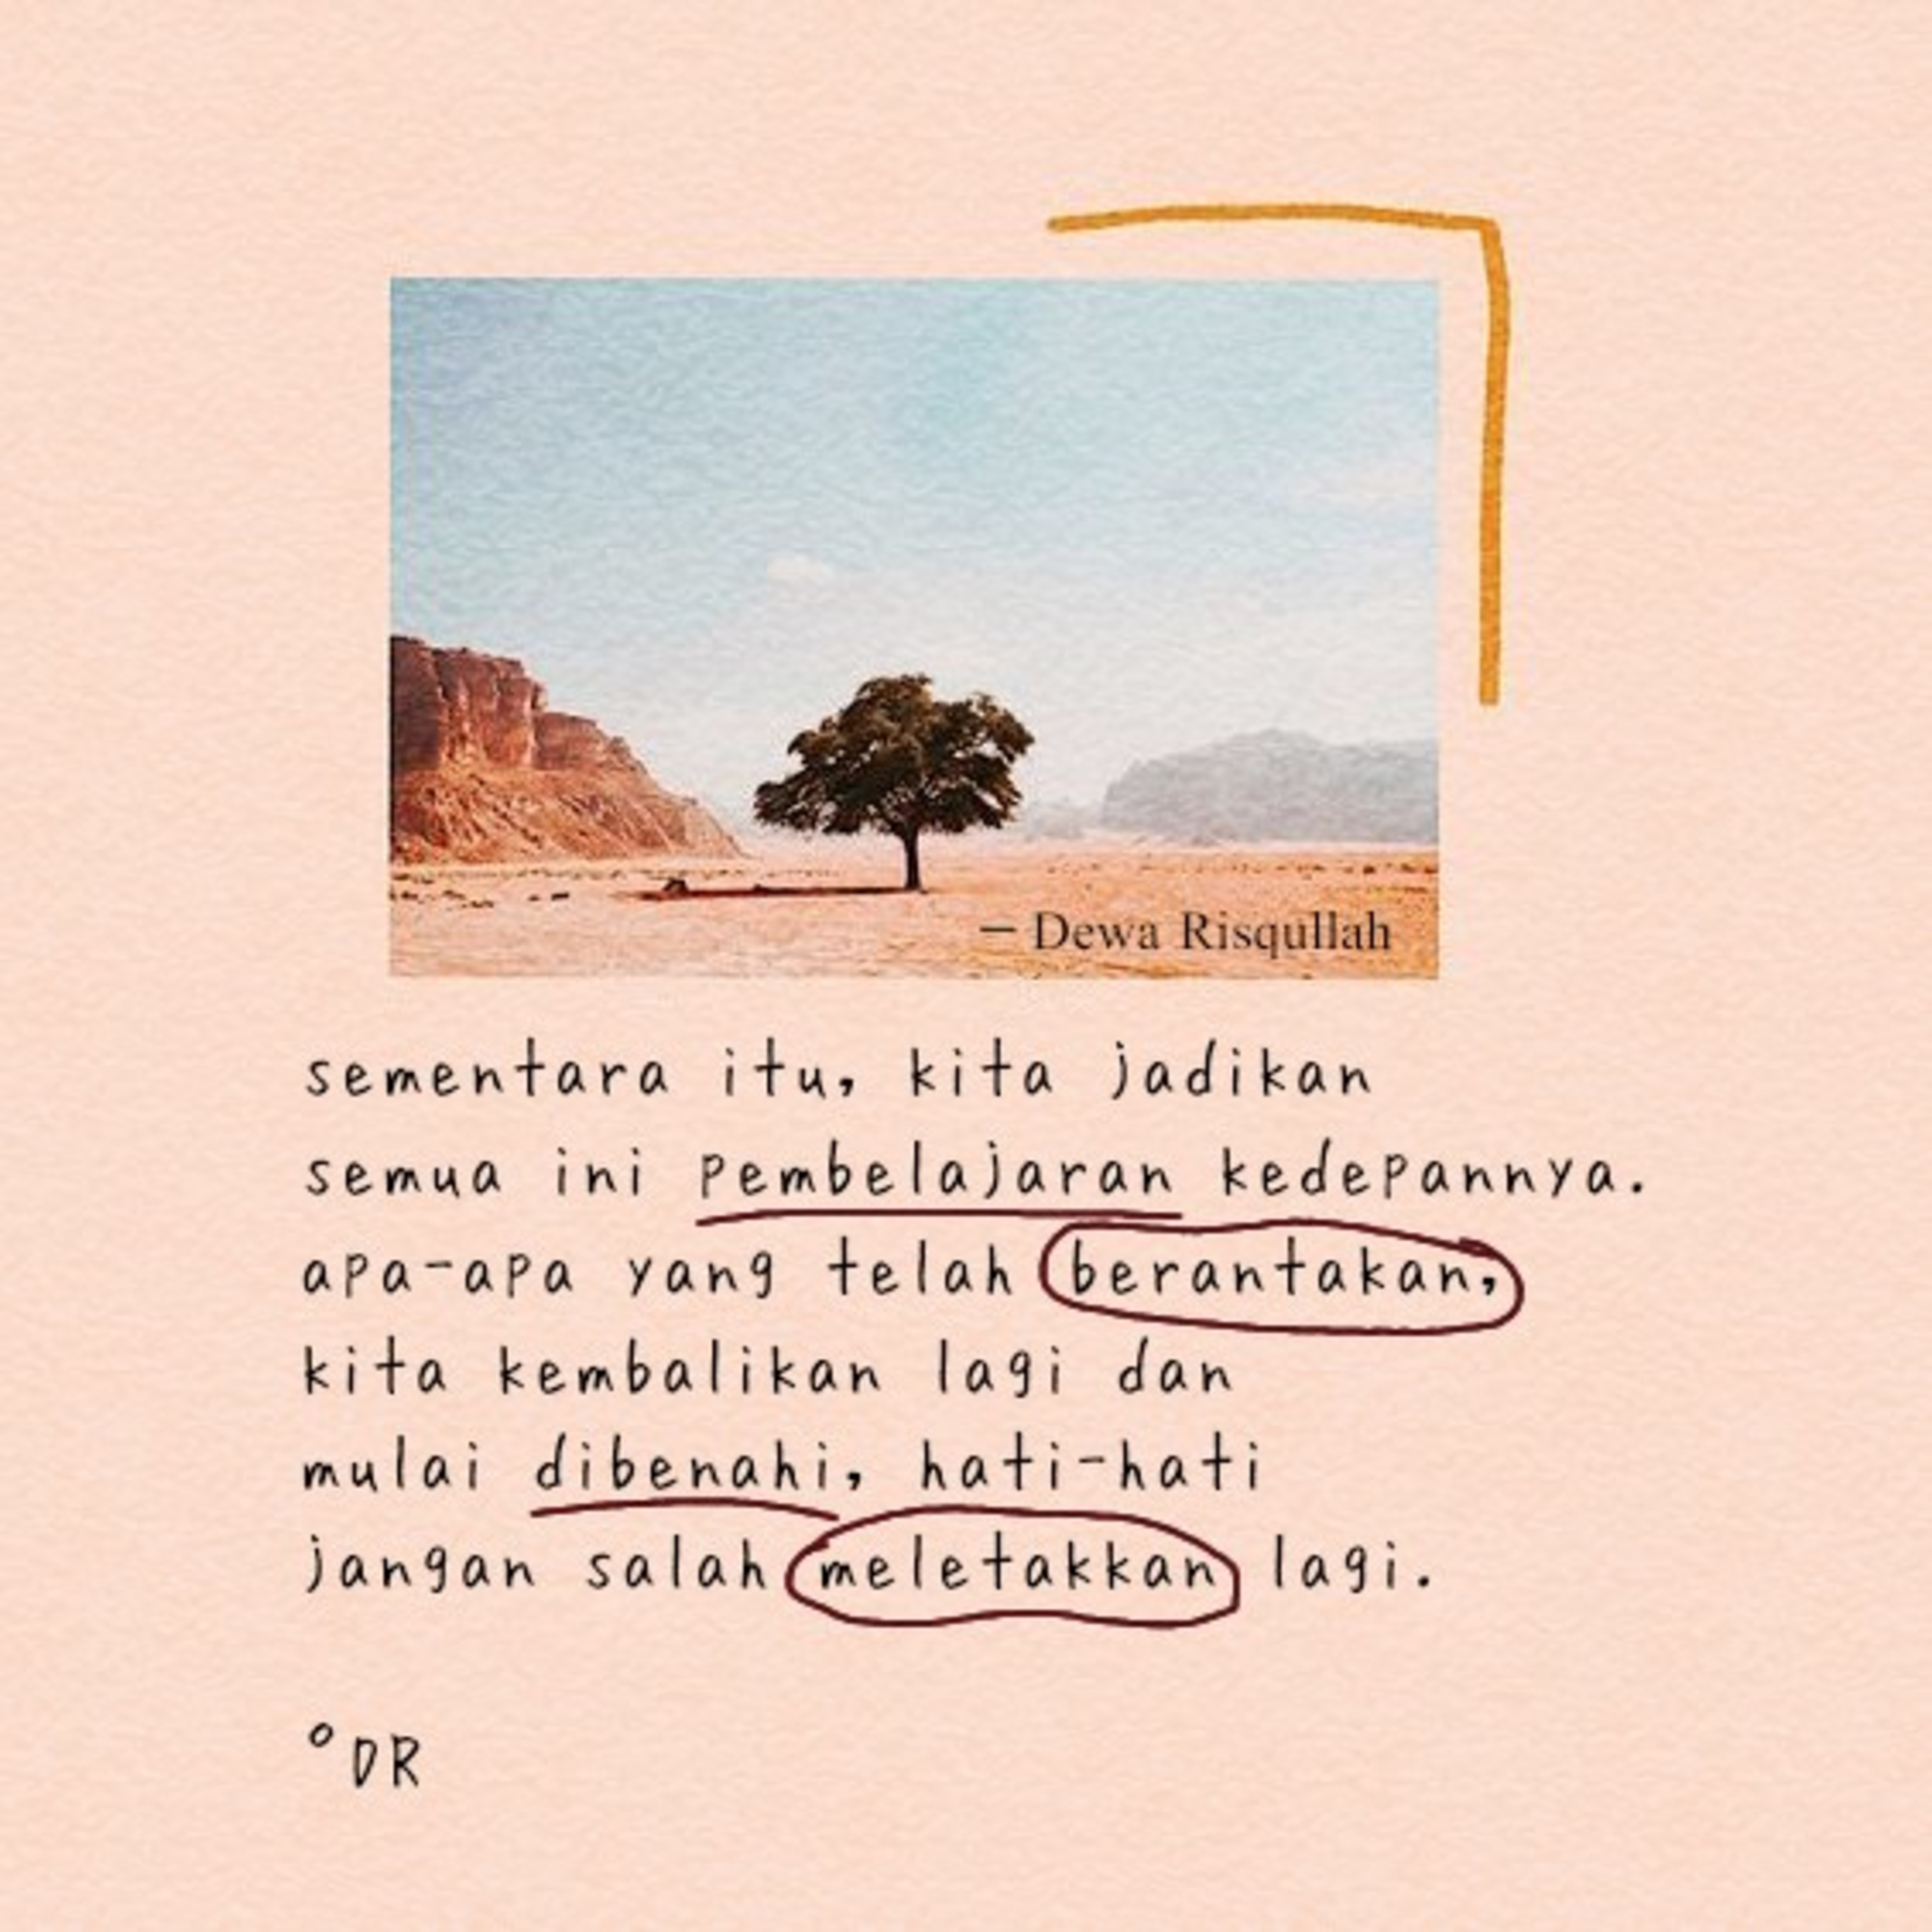 — Dewa Risqullah
sementara itu, kita jadikan
semua ini pembelajaran kedepannya.
apa-apa yang telah berantakan,
kita kembalikan lagi dan
mulai dibenahi, hati-hati
jangan salah meletakkan lagi.
°DR